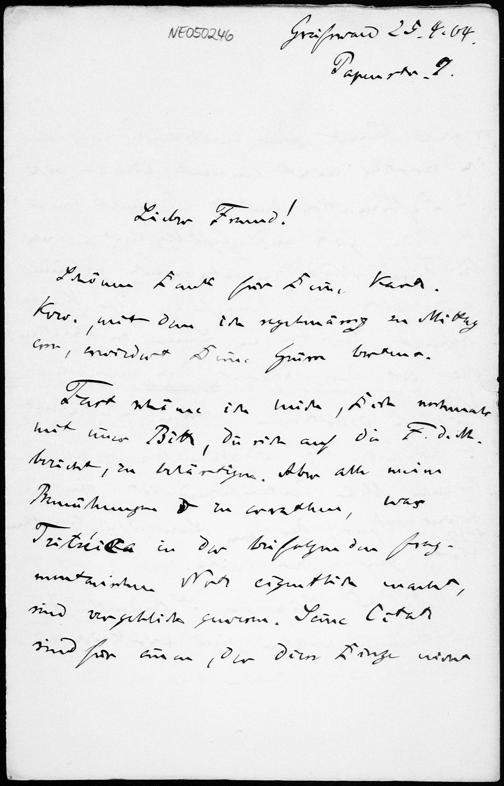 NE050246
Greifswald 25.4.04.
Papenstr. 9.
Lieber Freund!
Schönen Dank für Deine Karte.
mit dem ich regelmässig zu Mittag
esse, erwidert Deine Grüsse bestens.
Fast schäme ich mich, Dich nochmals
mit einer Bitte, die sich auf die F.
bezieht, zu belästigen. Aber alle meine
Bemühungen zu erraten, was
in der beifolgenden frag-
mentarischen Note eigentlich macht,
sind vergeblich gewesen. Seine Citate
sind für einen, der diese Dinge nicht